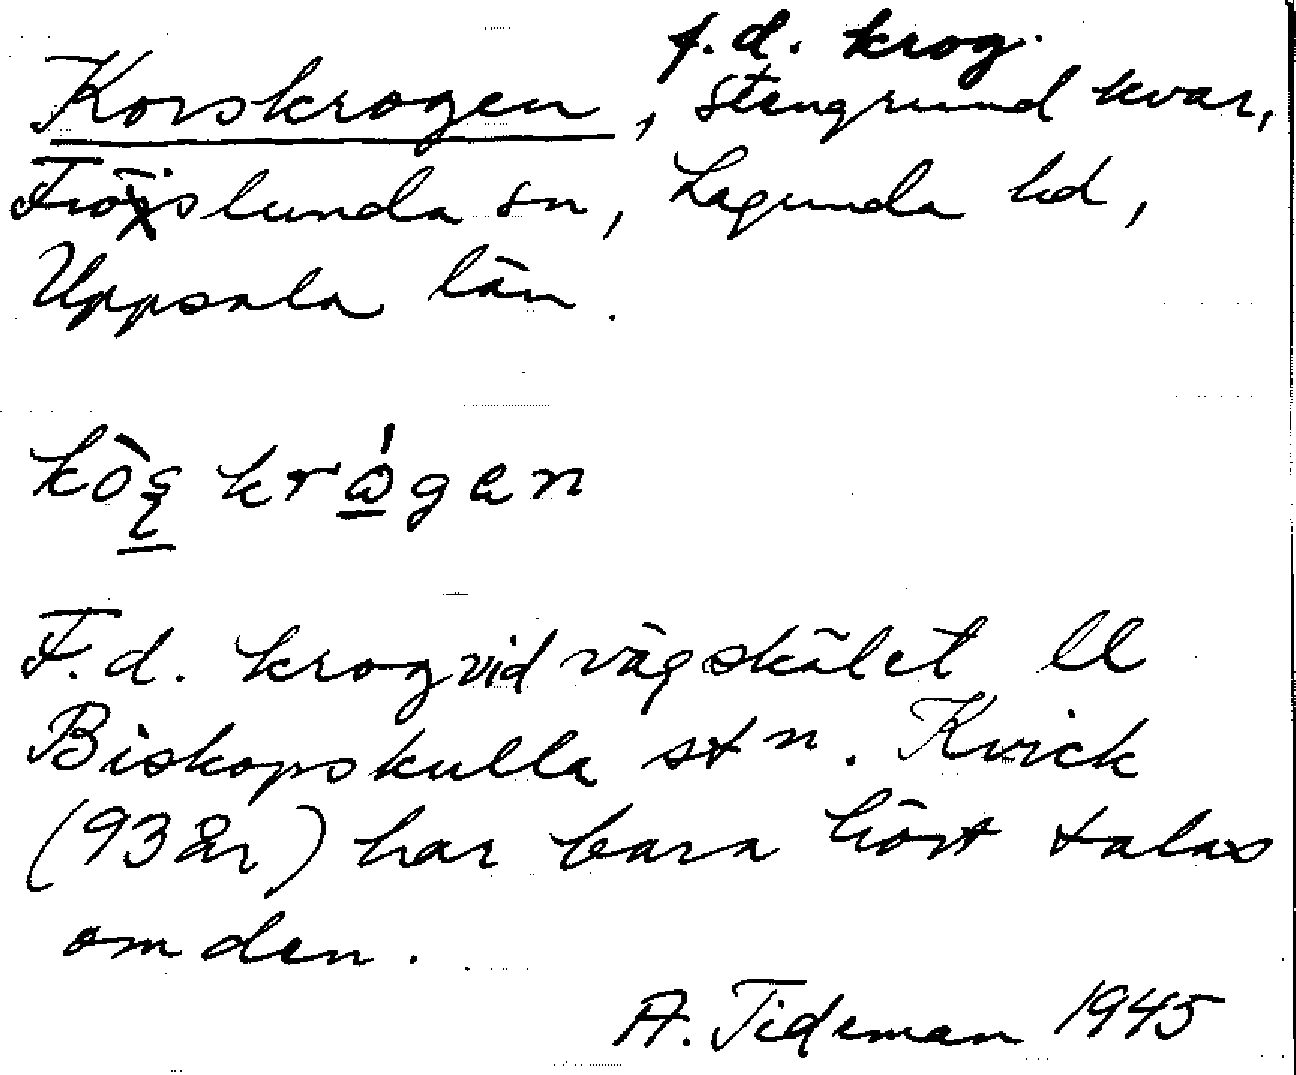 f.d. krog.
Korskrogen, stengrund kvar,
Fröslunda sn, Lagunda hd,
Uppsala län.
F.d. krog vid vägskälet
Biskopskulla stn. Kvick
(93 år) har bara hört talas
om den.
A. Tideman 1945